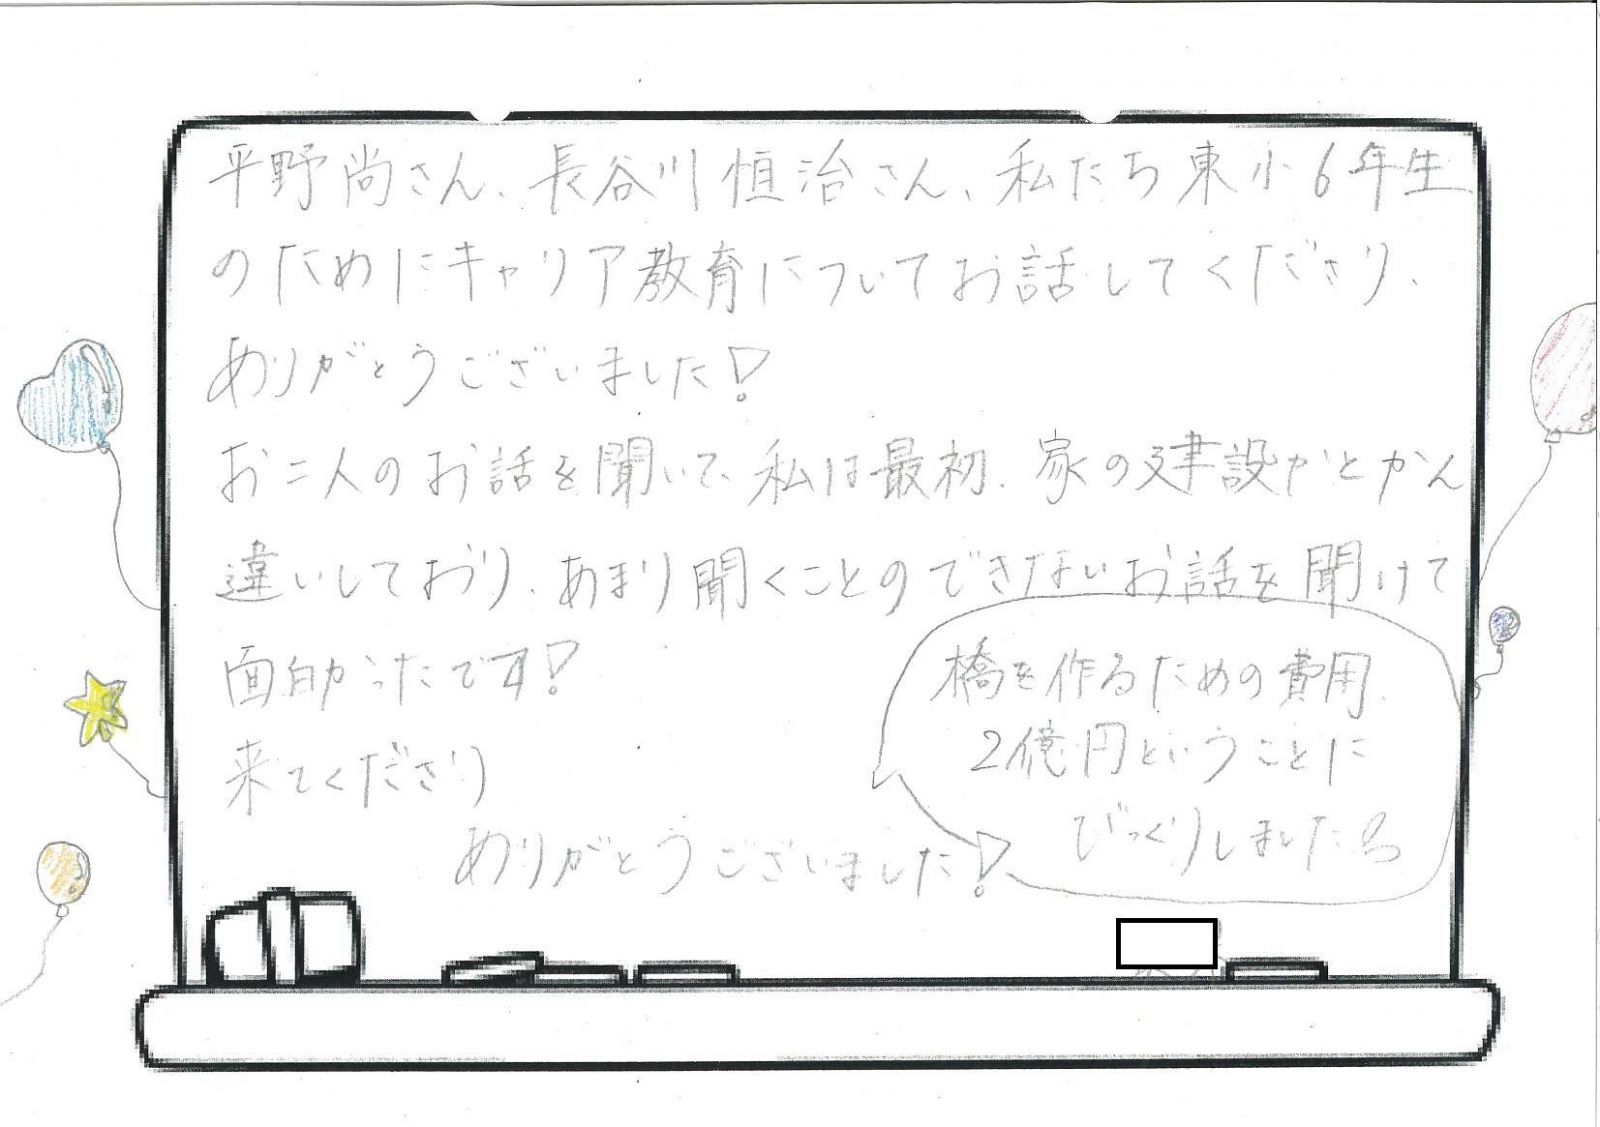 平野尚さん、長谷川恒治さん、私たち東小6年生
のためにキャリア教育についてお話してくださり、
ありがとうございました!
お二人のお話を聞いて、私は最初、家の建設かとかん
違いしており、あまり聞くことのできないお話を聞けて
面白かったです!
来てくださり
ありがとうございました!
橋を作るための費用、
2億円ということに
びっくりしました